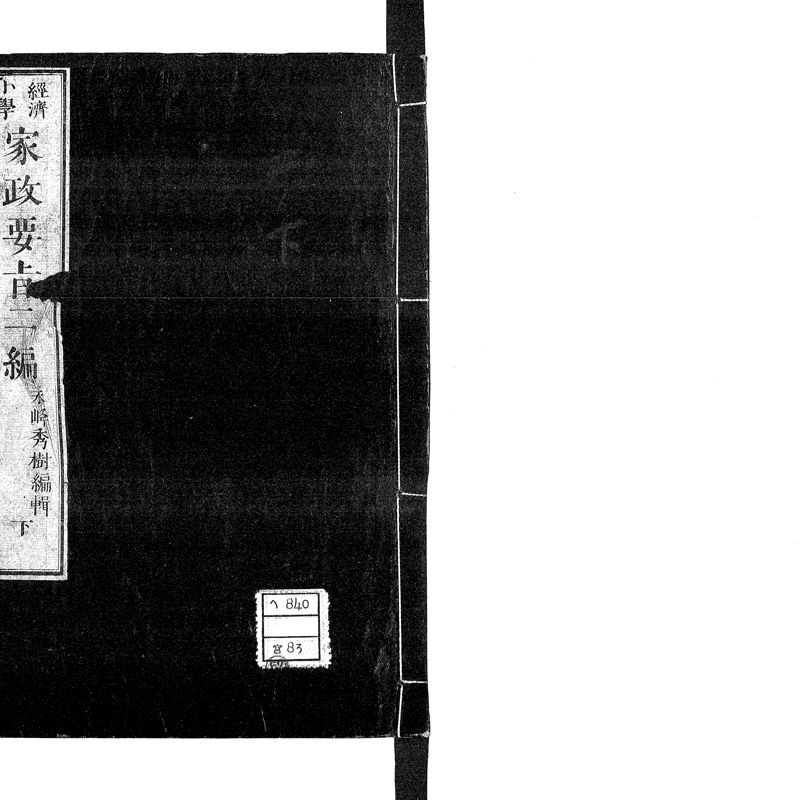 經濟
小學
家政要旨二編
永峰秀樹編輯
下
下
ヘ 840
宮 83